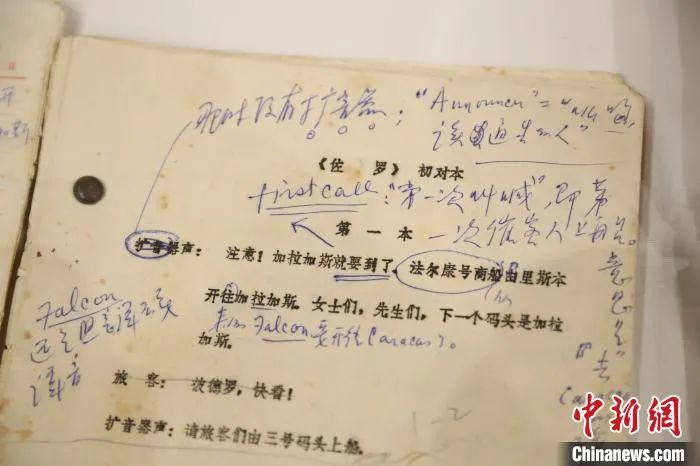 那时没有扩音器；"Announcer"=
该通告人"
《佐 罗》 初对本
first call "第一次叫喊"，即第
一次催客人上船。
第 一 本
扩音器声： 注意！加拉加斯就要到了，法尔康号商船由里斯本
开往加拉加斯。女士们，先生们，下一个码头是加拉
Falcon Falcon 要开往 Caracas)。
意思是"
去
加斯。
旅 客： 彼德罗，快看！
扩音器声： 请旅客们由三号码头上船。
1-2
中新网
Chinanews.com